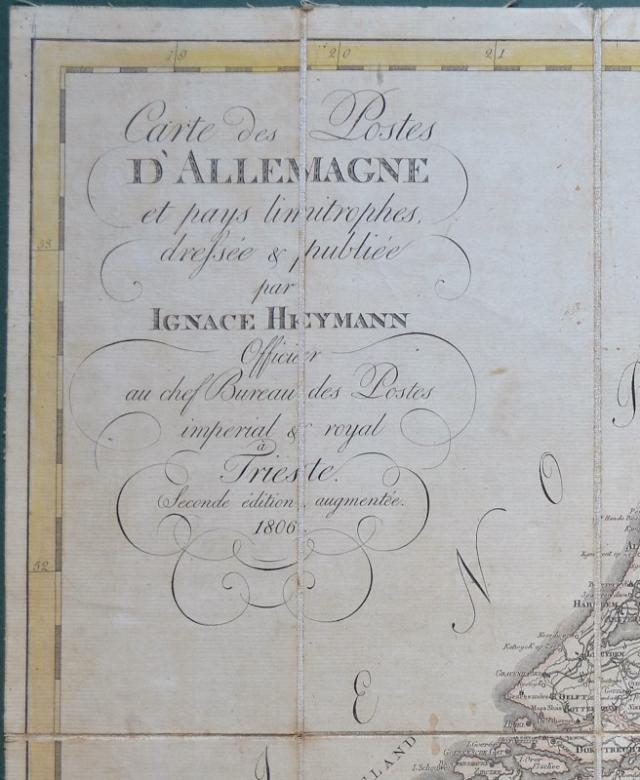 19 20 21
Carte des Postes
D'ALLEMAGNE
et pays limitrophes,
dreſsée & publiée
par
IGNACE HEYMANN
Officier
au chef Bureau des Postes
imperial & royal
à
Trieste.
Seconde édition, augmentée.
1806.
53
52
N O
E
HARLEM
LEYDEN
DELFT
ROTTERDAM
DORDTRECHT